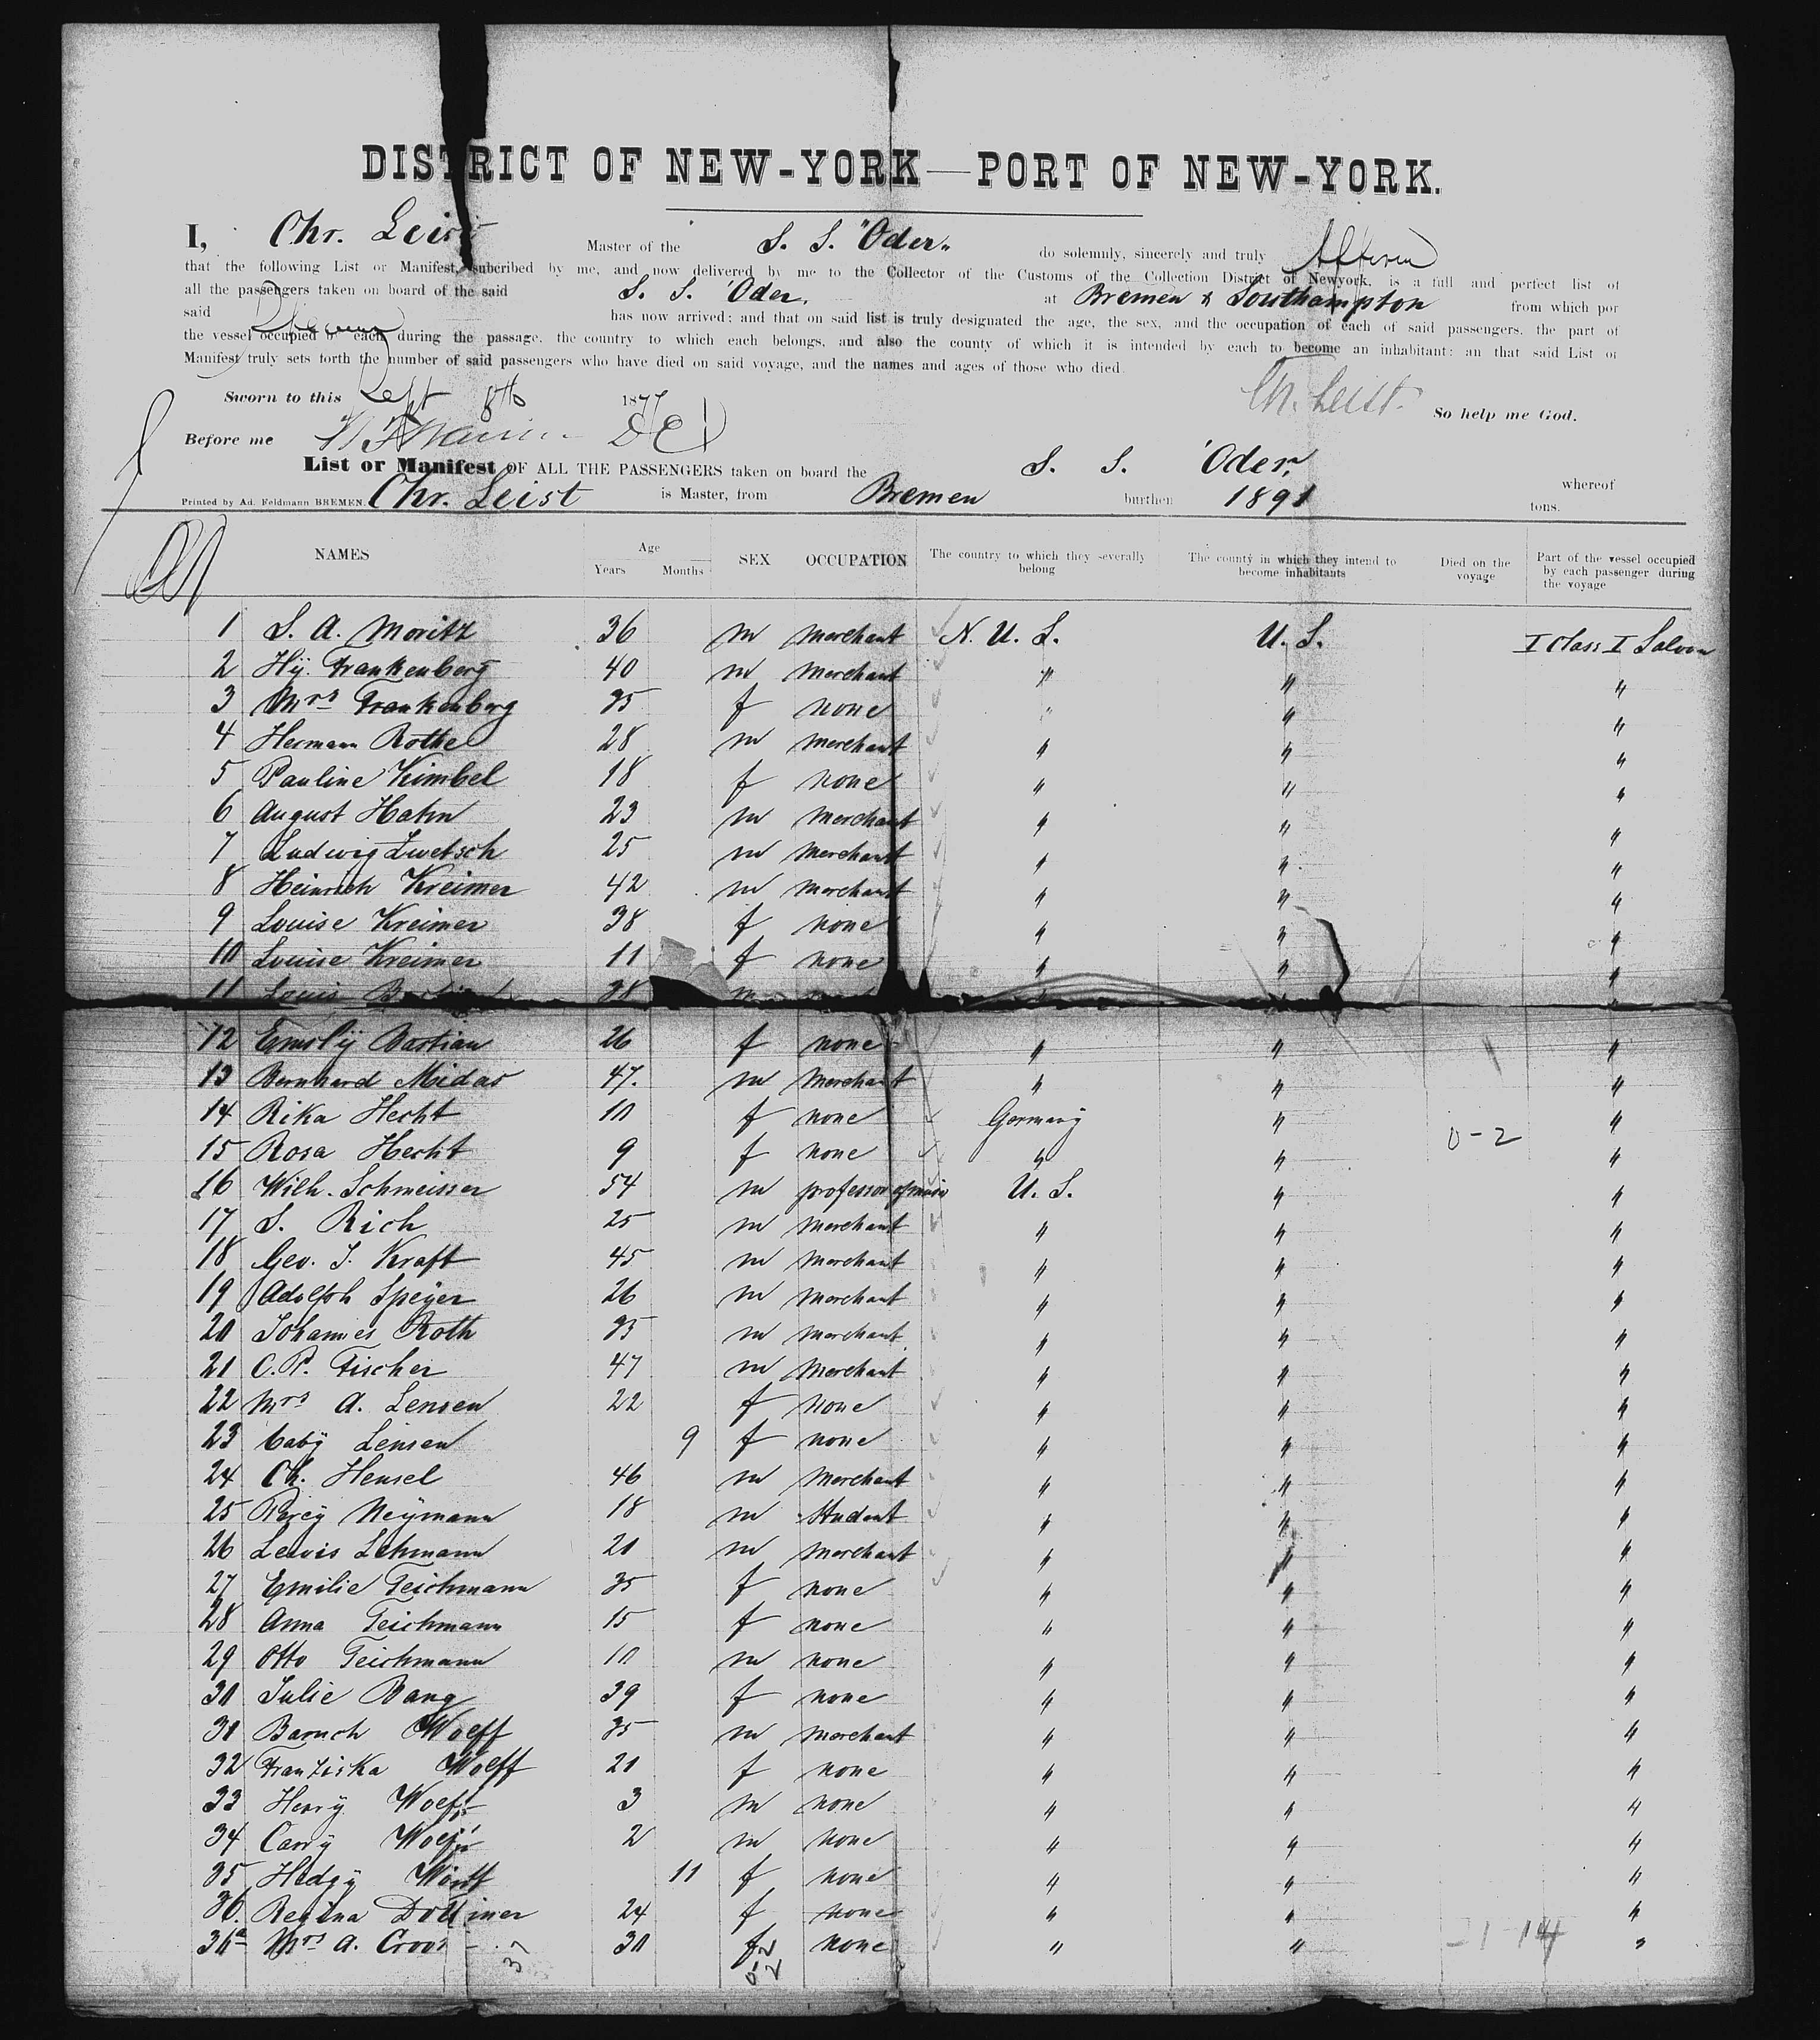 DISTRICT OF NEW-YORK—PORT OF NEW-YORK.
I, Chr. Leist Master of the S. S. "Oder" do solemnly, sincerely and truly
that the following List or Manifest, subcribed by me, and now delivered by me to the Collector of the Customs of the Collection District of Newyork, is a full and perfect list of
all the passengers taken on board of the said S. S. Oder. at Bremen & Southampton from which por
said has now arrived: and that on said list is truly designated the age, the sex, and the occupation of each of said passengers, the part of
the vessel occupied by each during the passage, the country to which each belongs, and also the county of which it is intended by each to become an inhabitant: an that said List or
Manifest truly sets forth the number of said passengers who have died on said voyage, and the names and ages of those who died.
Sworn to this Sept 8th 1877 Ch. Leist. So help me God.
Before me
List or Manifest OF ALL THE PASSENGERS taken on board the S. S. Oder, whereof
Printed by Ad. Feldmann BREMEN. Chr. Leist is Master, from Bremen burthen 1891 tons.
NAMES Age Years Months SEX OCCUPATION The country to which they severally belong The county in which they intend to become inhabitants Died on the voyage Part of the vessel occupied by each passenger during the voyage
1 S. A. Moritz 36 m merchant N. U. S. U. S. I class I Saloon
2 Hÿ. Frankenberg 40 m merchant " " "
3 Mrs Frankenberg 35 f none " " "
4 Hermann Rothe 28 m merchant " " "
5 Pauline Kimbel 18 f none " " "
6 August Hahn 23 m merchant " " "
7 Ludwig Zwetsch 25 m merchant " " "
8 Heinrich Kreimer 42 m merchant " " "
9 Louise Kreimer 38 f none " " "
10 Louise Kreimer 11 f none " " "
11 Louis 38 m
12 Emilÿ Bastian 26 f none " " "
13 Bernhard Midas 47. m merchant " " "
14 Rika Hecht 10 f none Germanÿ " "
15 Rosa Hecht 9 f none " " 0-2 "
16 Wilh. Schmeisser 54 m professor of music U. S. " "
17 S. Rich 25 m merchant " " "
18 Geo. J. Kraft 45 m merchant " " "
19 Adolph Speÿer 26 m merchant " " "
20 Johannes Roth 35 m merchant " " "
21 C. P. Fischer 47 m merchant " " "
22 Mrs A. Lensen 22 f none " " "
23 babÿ Lensen 9 f none " " "
24 Ch. Hensel 46 m merchant " " "
25 Percÿ Neÿmann 18 m student " " "
26 Lewis Lehmann 20 m merchant " " "
27 Emilie Teichmann 35 f none " " "
28 Anna Teichmann 15 f none " " "
29 Otto Teichmann 10 m none " " "
30 Julie Bang 39 f none " " "
31 Baruch Wolff 35 m merchant " " "
32 Franziska Wolff 20 f none " " "
33 Henrÿ Wolff 3 m none " " "
34 Carrÿ Wolff 2 m none " " "
35 Hedgÿ Wolff 11 f none " " "
36. Regina Dolliner 24 f none " " "
36a Mrs A. 30 f none " " "
37